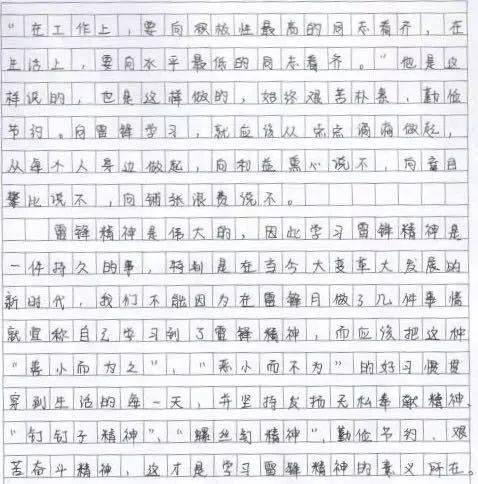 “在工作上，要向积极性最高的同志看齐，在
生活上，要向水平最低的同志看齐。”他是这
样说的，也是这样做的，始终艰苦朴素，勤俭
节约。向雷锋学习，就应该从点点滴滴做起，
从每个人身边做起，向利益熏心说不，向盲目
攀比说不，向铺张浪费说不。
雷锋精神是伟大的，因此学习雷锋精神是
一件持久的事，特别是在当今大变革大发展的
新时代，我们不能因为在雷锋月做了几件事情
就宣称自己学习到了雷锋精神，而应该把这种
“善小而为之”，“恶小而不为”的好习惯贯
穿到生活的每一天，并坚持发扬无私奉献精神、
“钉钉子精神”、“螺丝钉精神”、勤俭节约、艰
苦奋斗精神，这才是学习雷锋精神的意义所在。